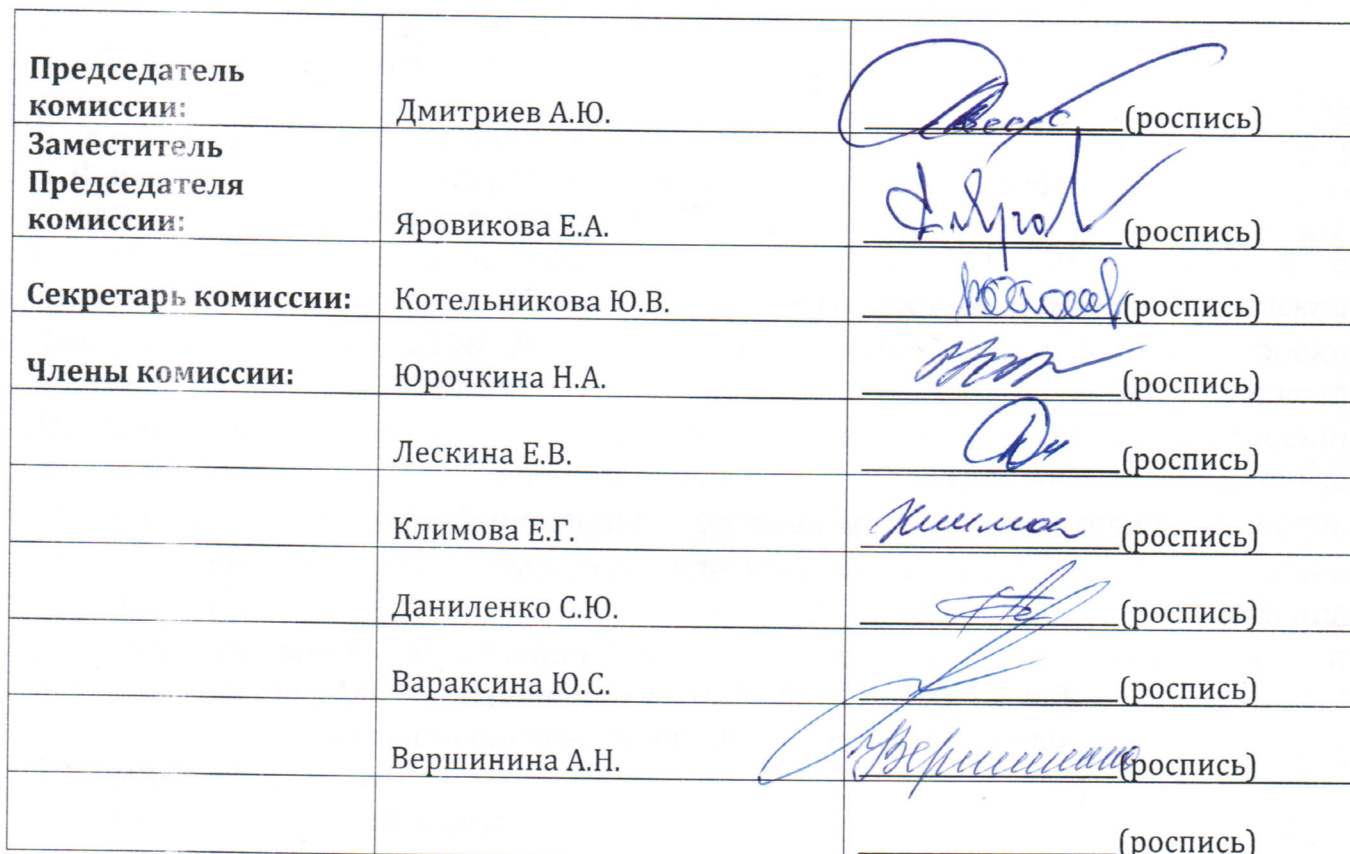 Председатель
комиссии: Дмитриев А.Ю. (роспись)
Заместитель
Председателя
комиссии: Яровикова Е.А. (роспись)
Секретарь комиссии: Котельникова Ю.В. (роспись)
Члены комиссии: Юрочкина Н.А. (роспись)
Лескина Е.В. (роспись)
Климова Е.Г. (роспись)
Даниленко С.Ю. (роспись)
Вараксина Ю.С. (роспись)
Вершинина А.Н. (роспись)
(роспись)